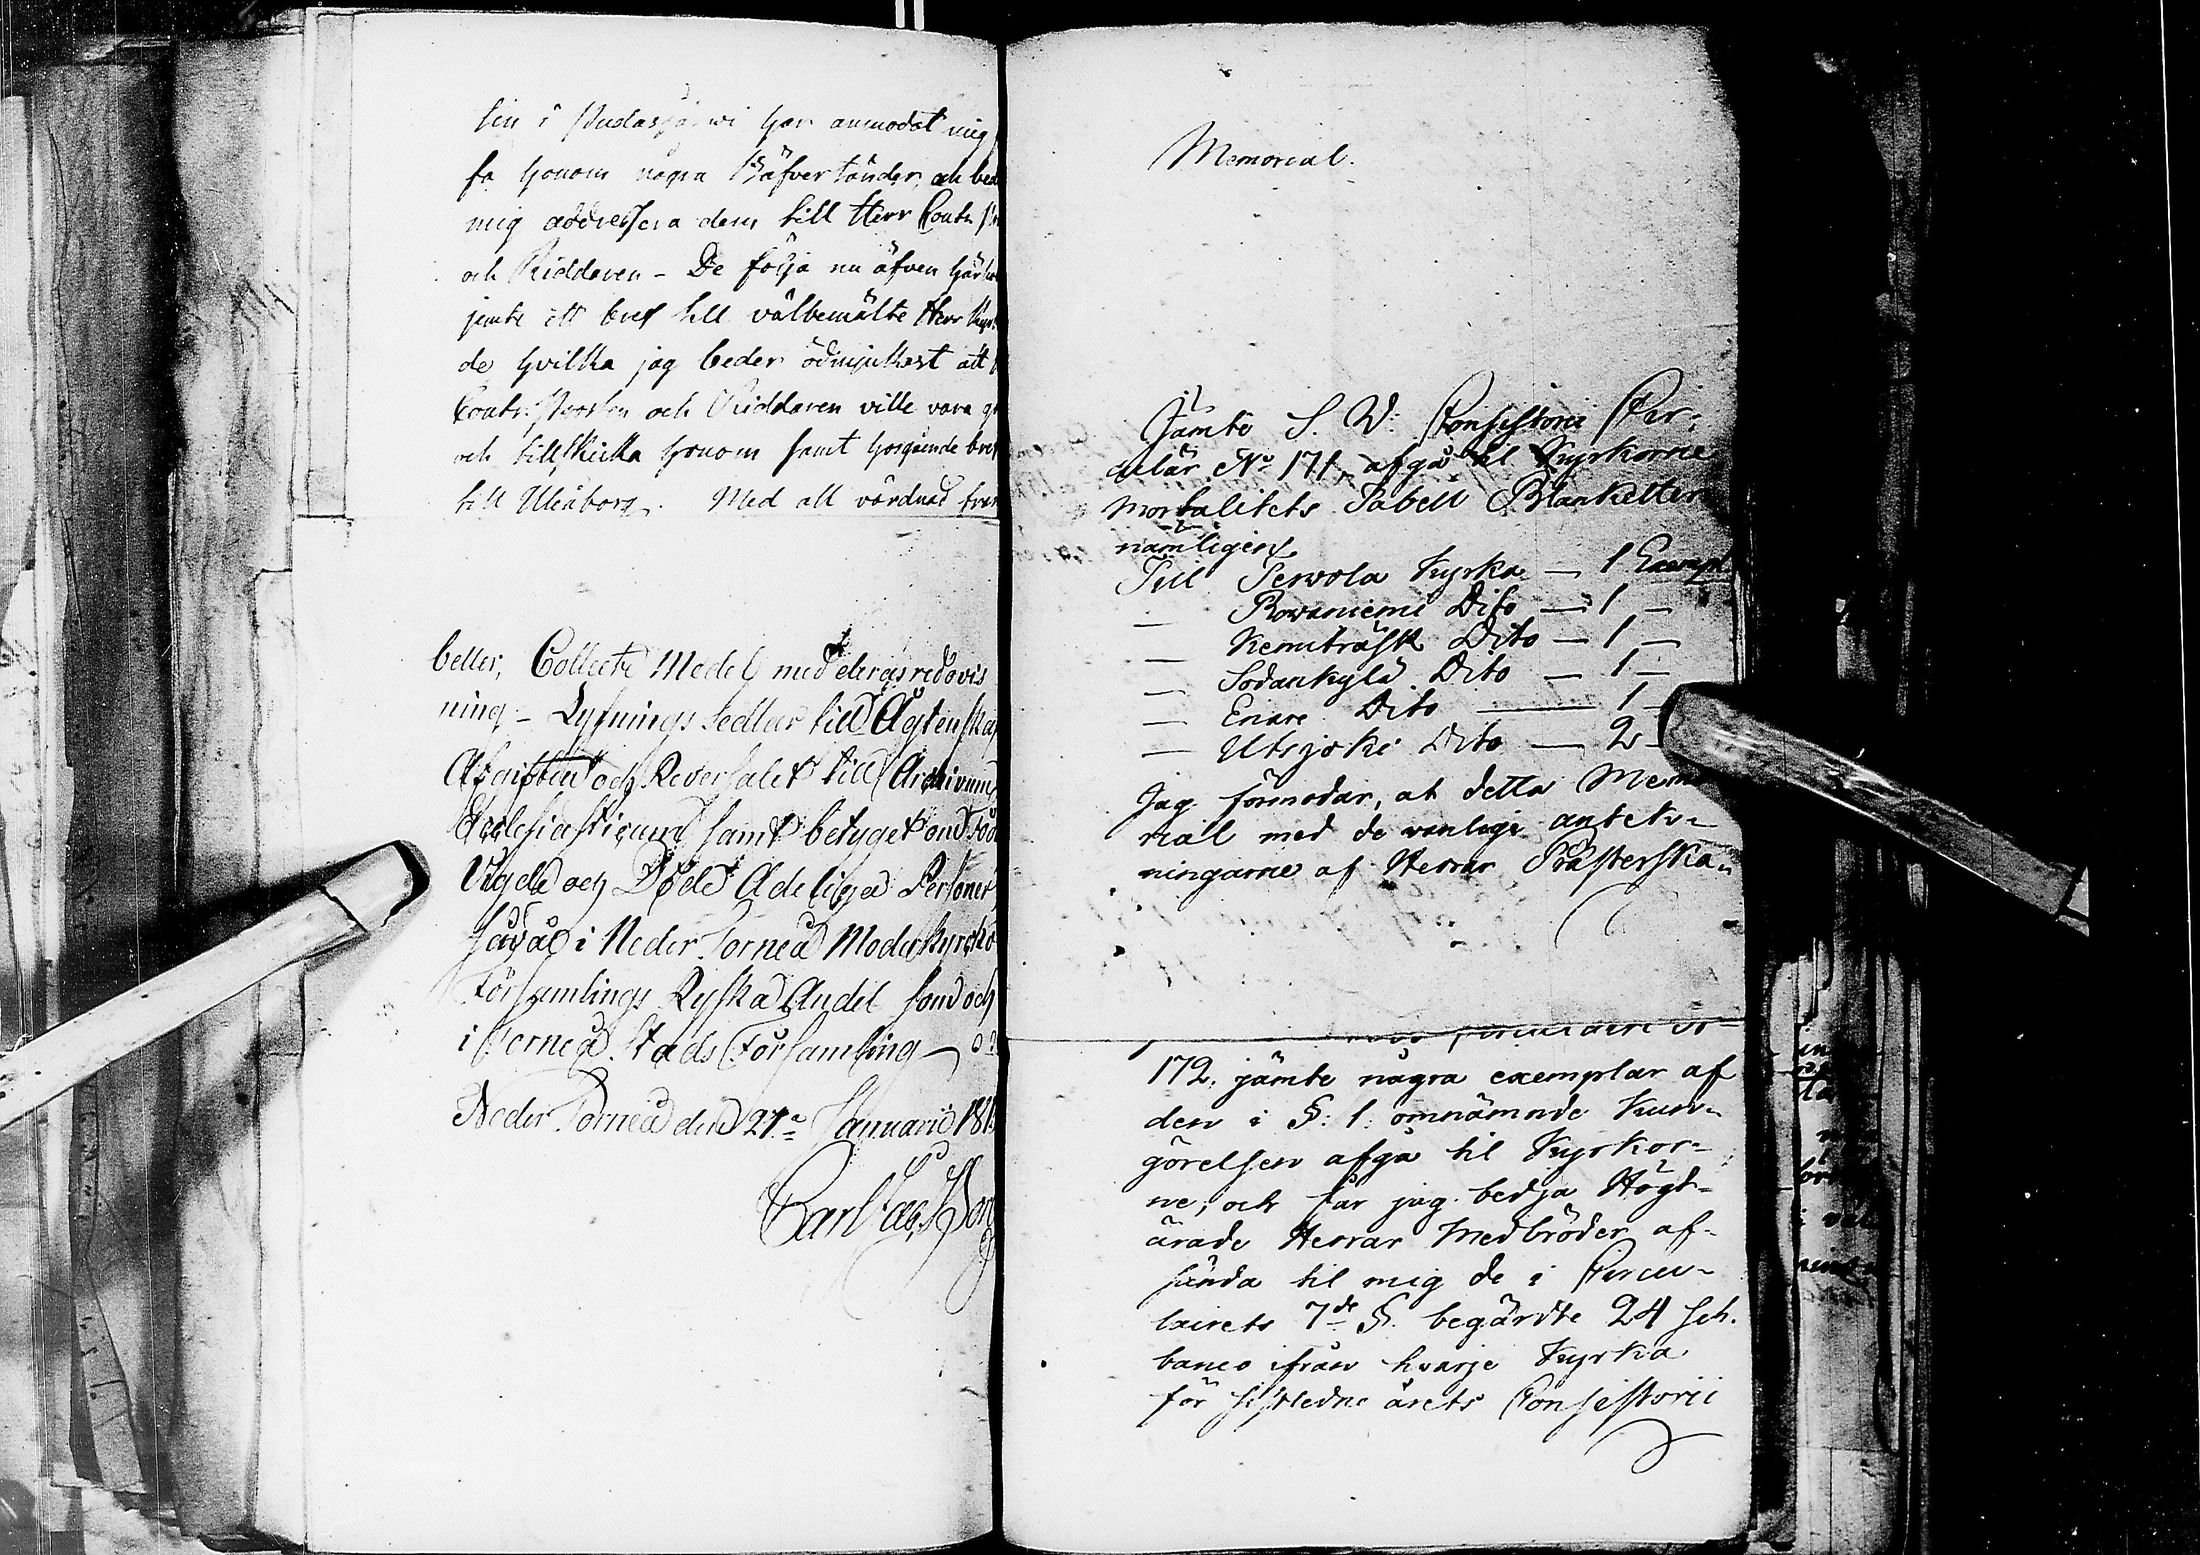 lin i Pudasjärwi har anmodat mig
få honom några Bäfvertänder, och bed
mig addressera dem till Herr Contr. Pr
och Riddaren - De följa nu äfven här
jemte ett bref till välbemälte Herr Kyrk
de hvilka jag beder ödmjukast att
Contr. Prosten och Riddaren ville vara g
och tillskicka honom samt hosgående bref
till Uleåborg. Med all vördnad fram
beller, Collecte Medel med deras redovis
ning - Lysnings Sedlar till Ägtenskap
Afskriften och Reversalet till Archivum
Ecclesiasticum samt betyget om Föd
Vigde och Döde Adeliga Personer
såväl i Neder Torneå Moderkyrko
Församlings Ryska Andel som och
i Torneå Stads Församling
Neder Torneå den 21a Januarii 181
Carl
Memorial.
Jämte S. V. Consistorii Cir-
culär No 171, afgå til Kyrkorne
Mortalitets Tabell Blanketter
namligen
Till Terwola Kyrka — 1 Exempl
— Rowaniemi Dito — 1 —
— Kemiträsk Dito — 1 —
— Sodankylä Dito — 1 —
— Enare Dito — 1 —
— Utsjoki Dito — 2 —
Jag förmodar, at detta Memo
rial med de vanliga antekn-
ningarne af Herrar Prästerska-
172. jämte några exemplar af
den i §: 1. omnämnde Kun-
görelsen afgå til Kyrkor-
ne; och får jag bedja Högt-
ärade Herrar Medbröder af-
sända til mig de i Circu-
lairets 7de §. begärdte 24 sch.
banco ifrån hvarje Kyrka
för sistledne årets Consistorii